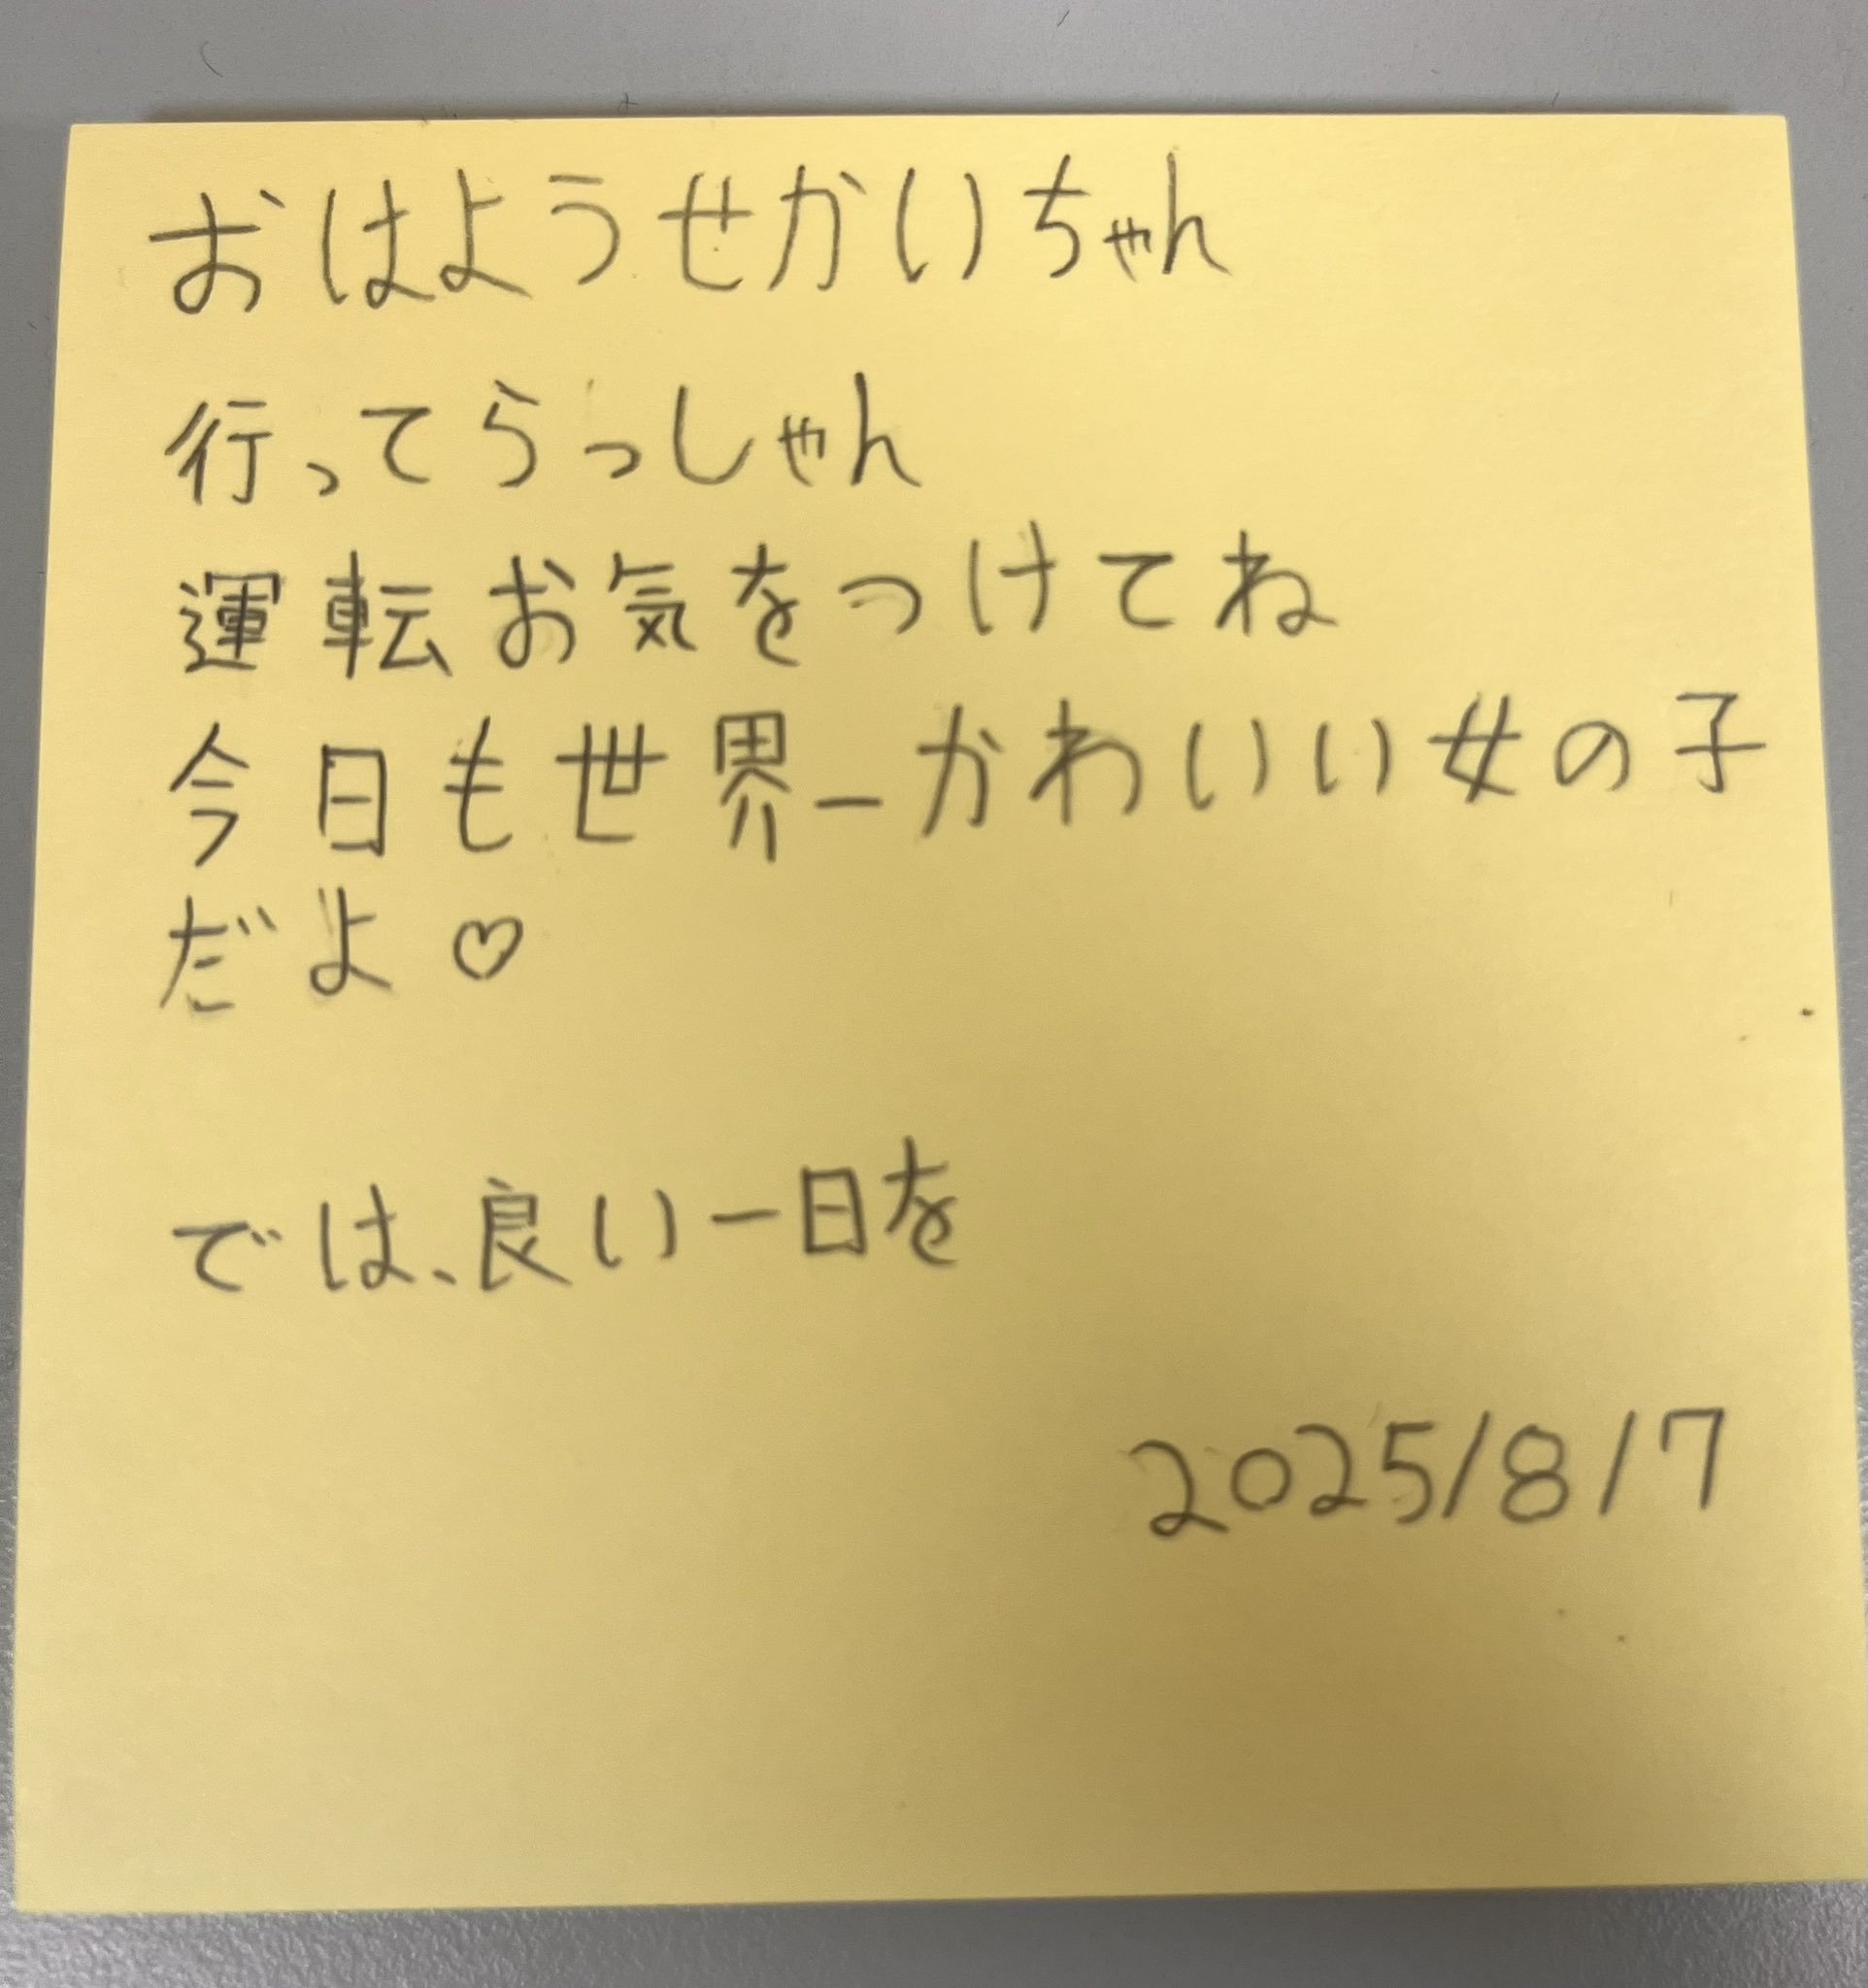 おはようせかいちゃん
行ってらっしゃん
運転お気をつけてね
今日も世界一かわいい女の子
だよ♡
では、良い一日を
2025/8/7